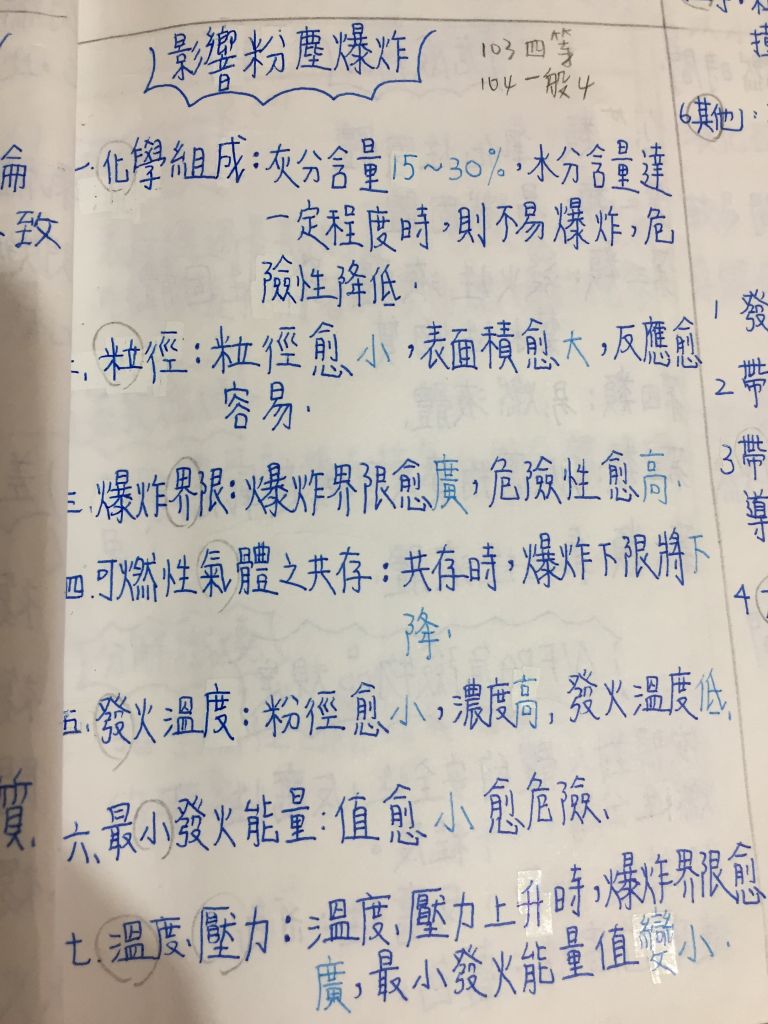 影響粉塵爆炸
103 四等
104 一般4
一.化學組成:灰分含量15~30%,水分含量達
一定程度時,則不易爆炸,危
險性降低.
二.粒徑:粒徑愈小,表面積愈大,反應愈
容易.
三.爆炸界限:爆炸界限愈廣,危險性愈高.
四.可燃性氣體之共存:共存時,爆炸下限將下
降.
五.發火溫度:粉徑愈小,濃度高,發火溫度低.
六、最小發火能量:值愈小愈危險、
七、溫度、壓力:溫度、壓力上升時,爆炸界限愈
廣,最小發火能量值變小.
致
質
6其他:
1 發
2 帶
3 帶
導
4